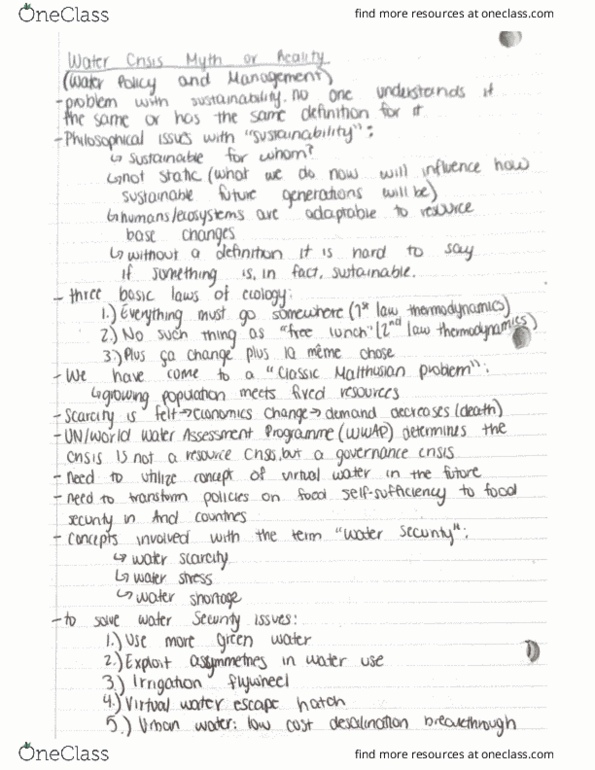 OneClass
find more resources at oneclass.com
Water Crisis Myth or Reality
(Water Policy and Management)
- problem with sustainability. no one understands it
the same or has the same definition for it
- Philosophical issues with "sustainability":
↳ sustainable for whom?
↳ not static (what we do now will influence how
sustainable future generations will be)
↳ humans/ecosystems are adaptable to resource
base changes
↳ without a definition it is hard to say
if something is, in fact, sustainable.
- three basic laws of ecology:
1.) Everything must go somewhere (1st law thermodynamics)
2.) No such thing as "free lunch" (2nd law thermodynamics)
3.) Plus ça change plus la même chose
- We have come to a "Classic Malthusian problem":
↳ growing population meets fixed resources
- Scarcity is felt → economics change → demand decreases (death)
- UN/World Water Assessment Programme (WWAP) determines the
crisis is not a resource crisis, but a governance crisis
- need to utilize concept of virtual water in the future
- need to transform policies on food self-sufficiency to food
security in Arid countries
- concepts involved with the term "water security":
↳ water scarcity
↳ water stress
↳ water shortage
- to solve water security issues:
1.) Use more green water
2.) Exploit assymetries in water use
3.) Irrigation flywheel
4.) Virtual water escape hatch
5.) Urban water: low cost desalination breakthrough
OneClass
find more resources at oneclass.com